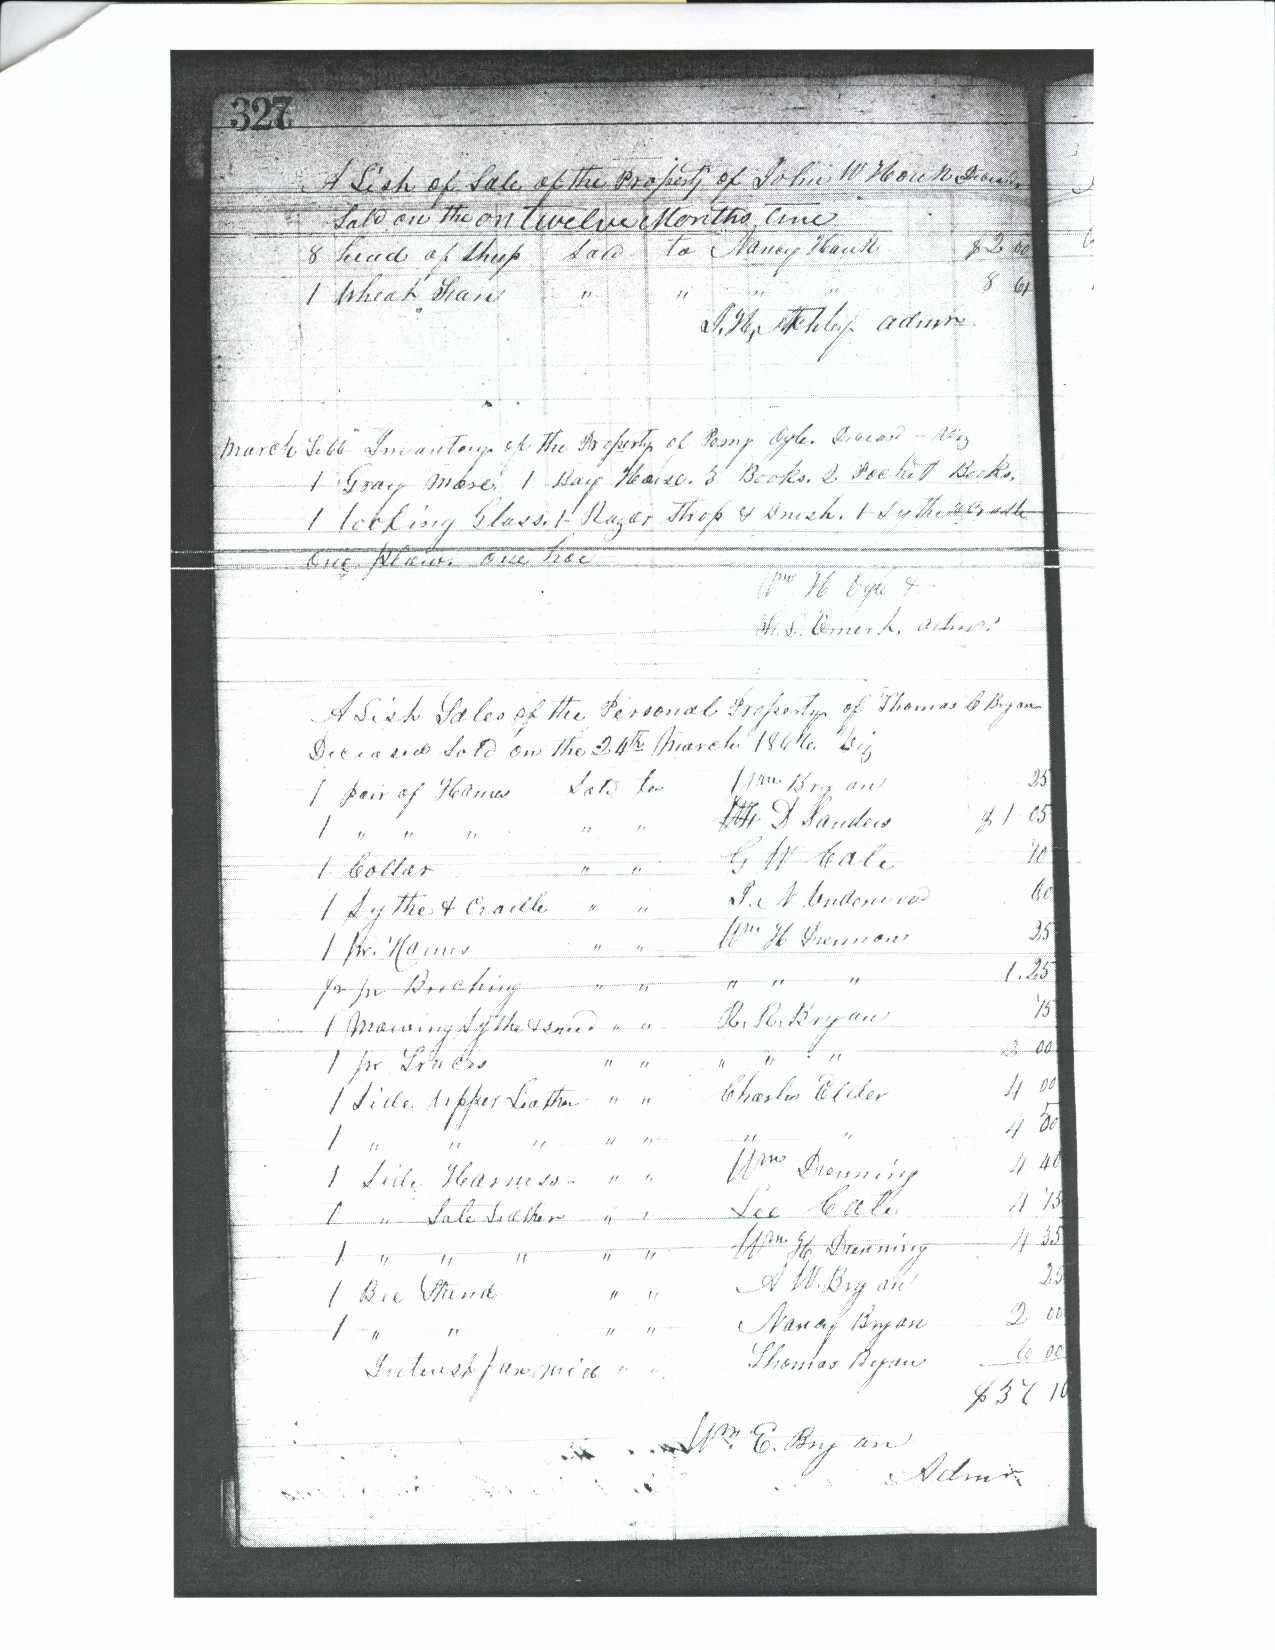 327
A List of Sale of the Property of John W Houk Deceas
Sold on the on twelve Months time
8 head of Sheep Sold to Nancy Houk $2 00
1 Wheat Fan " " " " 8
Atchley admr
March 1866 Inventory of the Property of Ogle. Deceasd - viz
1 Gray Mare. 1 Bay Horse. 3 Books. 2 Pocket Books.
1 looking Glass. 1 Razor Strop & Brush. 1 Sythe & Cradle
one plow. one hoe
Wm H Ogle &
Emert. admr.
A List Sales of the Personal Property of Thomas C Bryan
Deceased Sold on the 24th March 1866. Viz
1 pair of Hames Sold to Wm Bryan 25
1 " " " " " D Sanders $1 05
1 Collar " " G W Cate 10
1 Sythe & Cradle " " Underwood 60
1 pr. Hames " " Wm H Drennon 25
pr Breching " " " " " 1.25
1 Mowing Sythe & snead " " R. R. Bryan 75
1 pr " " " " " 2 00
1 Side Upper Leather " " Charles Elder 4 00
1 " " " " " " " 4
1 Side Harness " " Wm Drenning 4 40
1 " Sole Leather " " Lee Cate 4 75
1 " " " " " Wm H Drenning 4 35
1 Bee Stand " " A. W. Bryan 25
1 " " " " Nancy Bryan 2 00
Interest " " Thomas Bryan 6 00
$37 10
Wm. E. Bryan
Admr